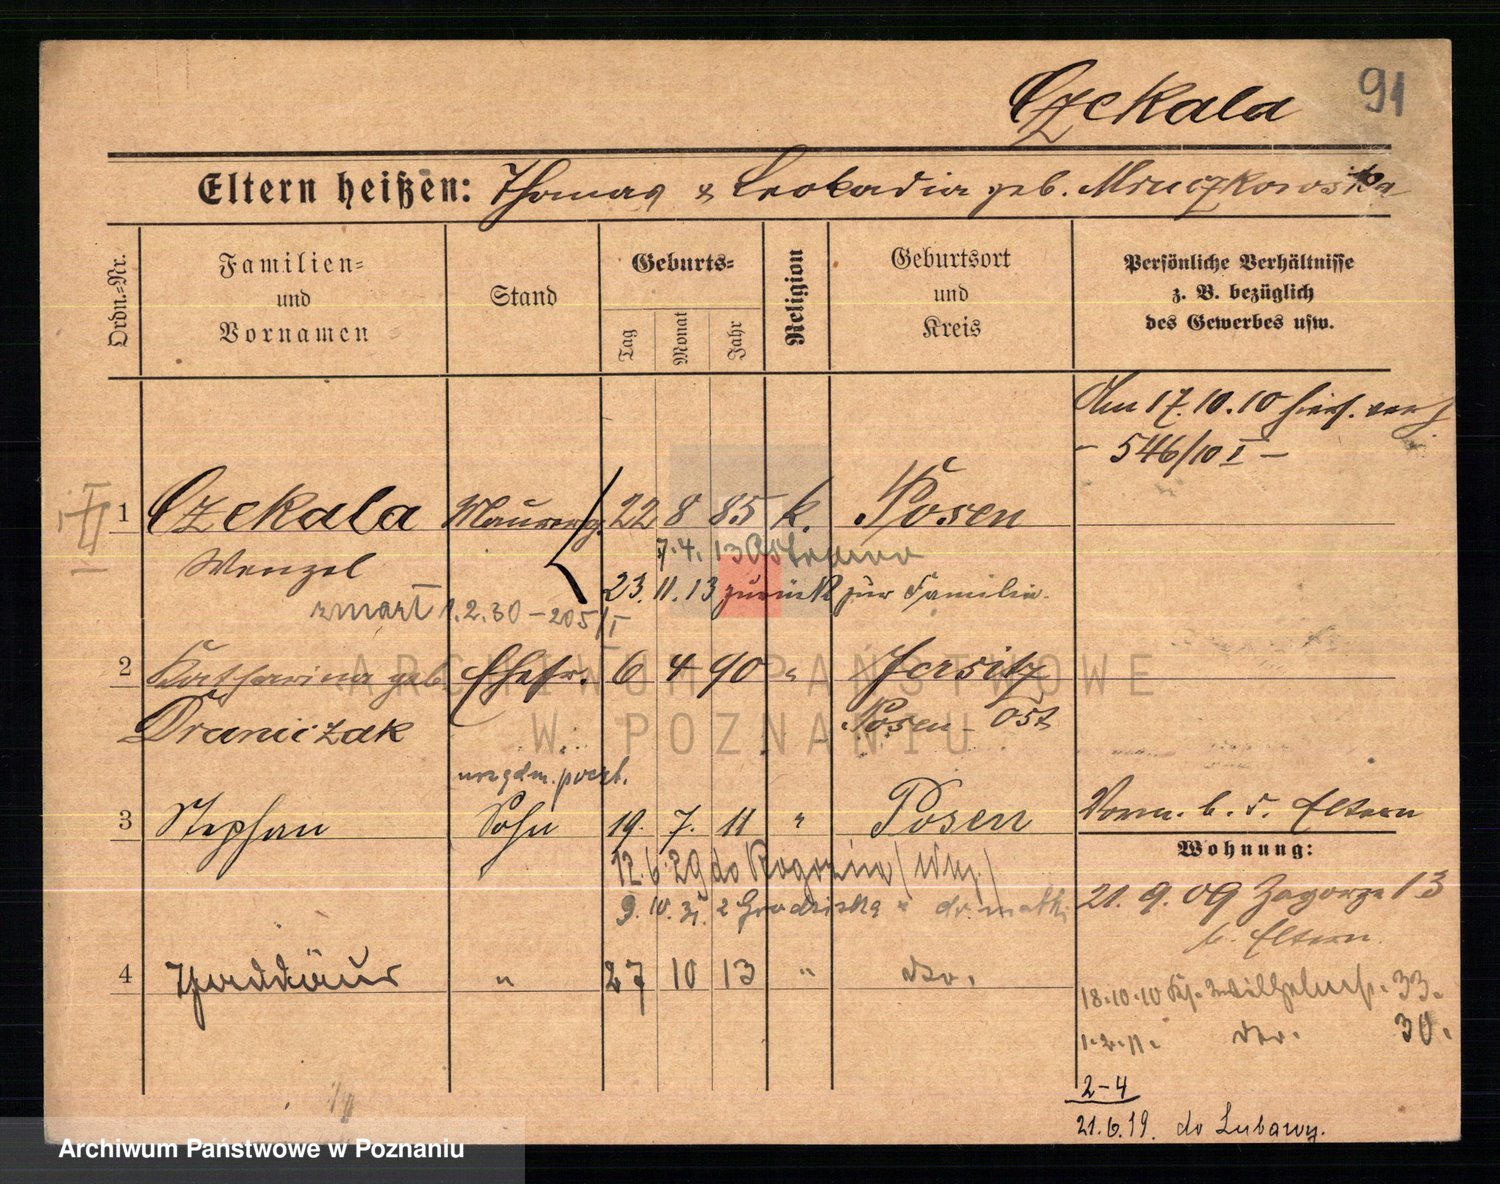 Czekala
91
Eltern heißen: Thomas & Leokadia geb. Mruczkowska
Ordn.-Nr.
Familien-
und
Vornamen
Stand
Geburts-
Tag
Monat
Jahr
Religion
Geburtsort
und
Kreis
Persönliche Verhältnisse
z. B. bezüglich
des Gewerbes usw.
Am 17.10.10 hier verh
- 546/10 I -
1 Czekala Maurerg. 22 8 85 k. Posen
Wenzel
7.4.13 Ostrowo
23.11.13 zurück zur Familie.
zmarł 1.2.30 - 205/I
2 Katharina geb Ehefr. 6 4 90 " Jersitz
Draniczak Posen Ost
urzędn. poczt.
3 Stephan Sohn 19. 7. 11 " Posen
Vorm. b. d. Eltern
Wohnung:
12.6.29 do Rogozina
9.10.31. z Grodziska
21.9.09 Zagorze 13
b. Eltern.
4 Thaddäus " 27 10 13 " dto.
18.10.10 Wilhelmst. 33.
1.2.11. dto. 30.
2-4
21.6.19. do Lubawy.
ARCHIWUM PAŃSTWOWE
W POZNANIU
Archiwum Państwowe w Poznaniu